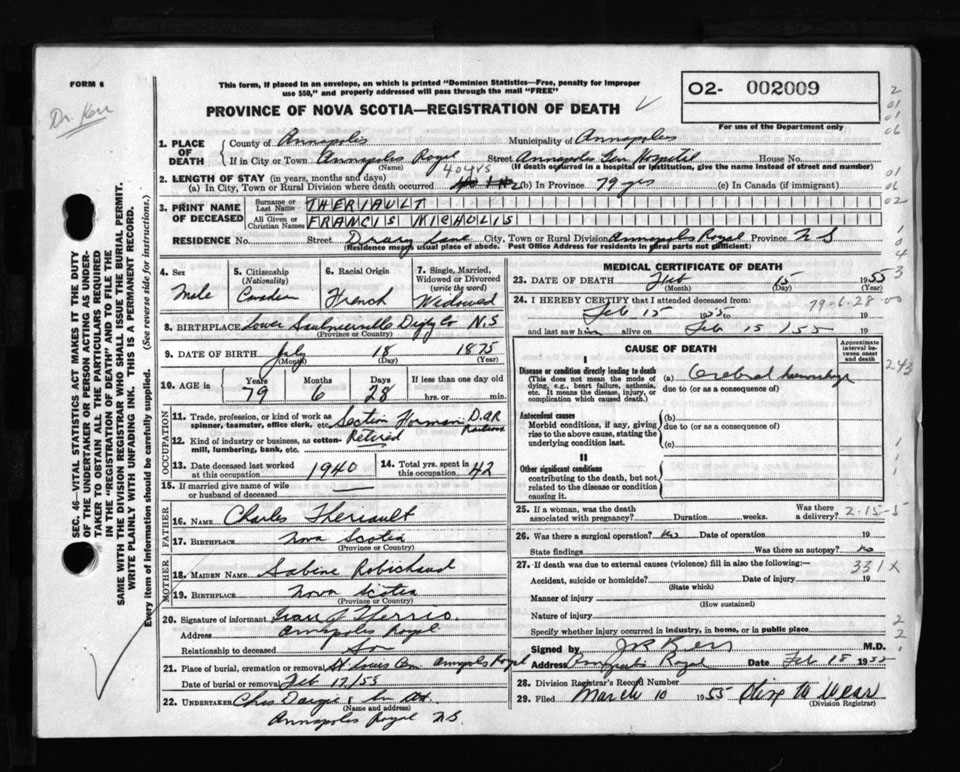 FORM 6
This form, if placed in an envelope, on which is printed "Dominion Statistics—Free, penalty for improper
use $50," and properly addressed will pass through the mail "FREE"
O2- 002009
Dr. Kerr
PROVINCE OF NOVA SCOTIA—REGISTRATION OF DEATH
For use of the Department only
1. PLACE OF DEATH
County of Annapolis Municipality of Annapolis
If in City or Town Annapolis Royal Street Annapolis Gen Hospital House No.
(Name) (If death occurred in a hospital or institution, give the name instead of street and number)
2. LENGTH OF STAY (in years, months and days) 40 yrs
(a) In City, Town or Rural Division where death occurred (b) In Province 79 yrs (c) In Canada (if immigrant)
3. PRINT NAME OF DECEASED
Surname or Last Name THERIAULT
All Given or Christian Names FRANCIS MICHOLIS
RESIDENCE No. Street Drury Lane City, Town or Rural Division Annapolis Royal Province N S
(Residence means usual place of abode. Post Office Address for residents in rural parts not sufficient)
4. Sex Male
5. Citizenship (Nationality) Canadian
6. Racial Origin French
7. Single, Married, Widowed or Divorced (write the word) Widowed
8. BIRTHPLACE Lower Saulnierville Digby Co N.S
(Province or Country)
9. DATE OF BIRTH July 18 1875
(Month) (Day) (Year)
10. AGE in Years 79 Months 6 Days 28 If less than one day old hrs. or min.
OCCUPATION
11. Trade, profession, or kind of work as spinner, teamster, office clerk, etc. Section Forman D.A.R Railway
12. Kind of industry or business, as cotton-mill, lumbering, bank, etc. Retired
13. Date deceased last worked at this occupation 1940
14. Total yrs. spent in this occupation 42
15. If married give name of wife or husband of deceased
FATHER
16. NAME Charles Theriault
17. BIRTHPLACE Nova Scotia
(Province or Country)
MOTHER
18. MAIDEN NAME Sabine Robichaud
19. BIRTHPLACE Nova Scotia
(Province or Country)
20. Signature of informant
Address Annapolis Royal
Relationship to deceased Son
21. Place of burial, cremation or removal St Louis Cem Annapolis Royal
Date of burial or removal Feb 17/55
22. UNDERTAKER Chas Dargie & Son
(Name and address)
Annapolis Royal N.S.
MEDICAL CERTIFICATE OF DEATH
23. DATE OF DEATH Feb 15 1955
(Month) (Day) (Year)
24. I HEREBY CERTIFY that I attended deceased from: 79-6-28-00
Feb 15 1955 to 19
and last saw him alive on Feb 15/55 19
CAUSE OF DEATH
Approximate interval between onset and death
I
Disease or condition directly leading to death (a) Cerebral hemorrhage
(This does not mean the mode of dying, e.g., heart failure, asthenia, etc. It means the disease, injury, or complication which caused death.)
due to (or as a consequence of)
243
Antecedent causes
Morbid conditions, if any, giving rise to the above cause, stating the underlying condition last.
(b)
due to (or as a consequence of)
(c)
II
Other significant conditions
contributing to the death, but not related to the disease or condition causing it.
25. If a woman, was the death associated with pregnancy? Duration weeks. Was there a delivery? 2-15-5
26. Was there a surgical operation? No Date of operation 19
State findings Was there an autopsy? No
27. If death was due to external causes (violence) fill in also the following:— 331X
Accident, suicide or homicide? Date of injury 19
(State which)
Manner of injury
(How sustained)
Nature of injury
Specify whether injury occurred in industry, in home, or in public place
Signed by J R Kerr M.D.
Address Annapolis Royal Date Feb 18 1955
28. Division Registrar's Record Number
29. Filed March 10 1955
(Division Registrar)
SEC. 46—VITAL STATISTICS ACT MAKES IT THE DUTY
OF THE UNDERTAKER OR PERSON ACTING AS UNDER-
TAKER TO OBTAIN ALL THE PARTICULARS REQUIRED
IN THE "REGISTRATION OF DEATH" AND TO FILE THE
SAME WITH THE DIVISION REGISTRAR WHO SHALL ISSUE THE BURIAL PERMIT.
WRITE PLAINLY WITH UNFADING INK. THIS IS A PERMANENT RECORD.
Every item of information should be carefully supplied. (See reverse side for instructions.)